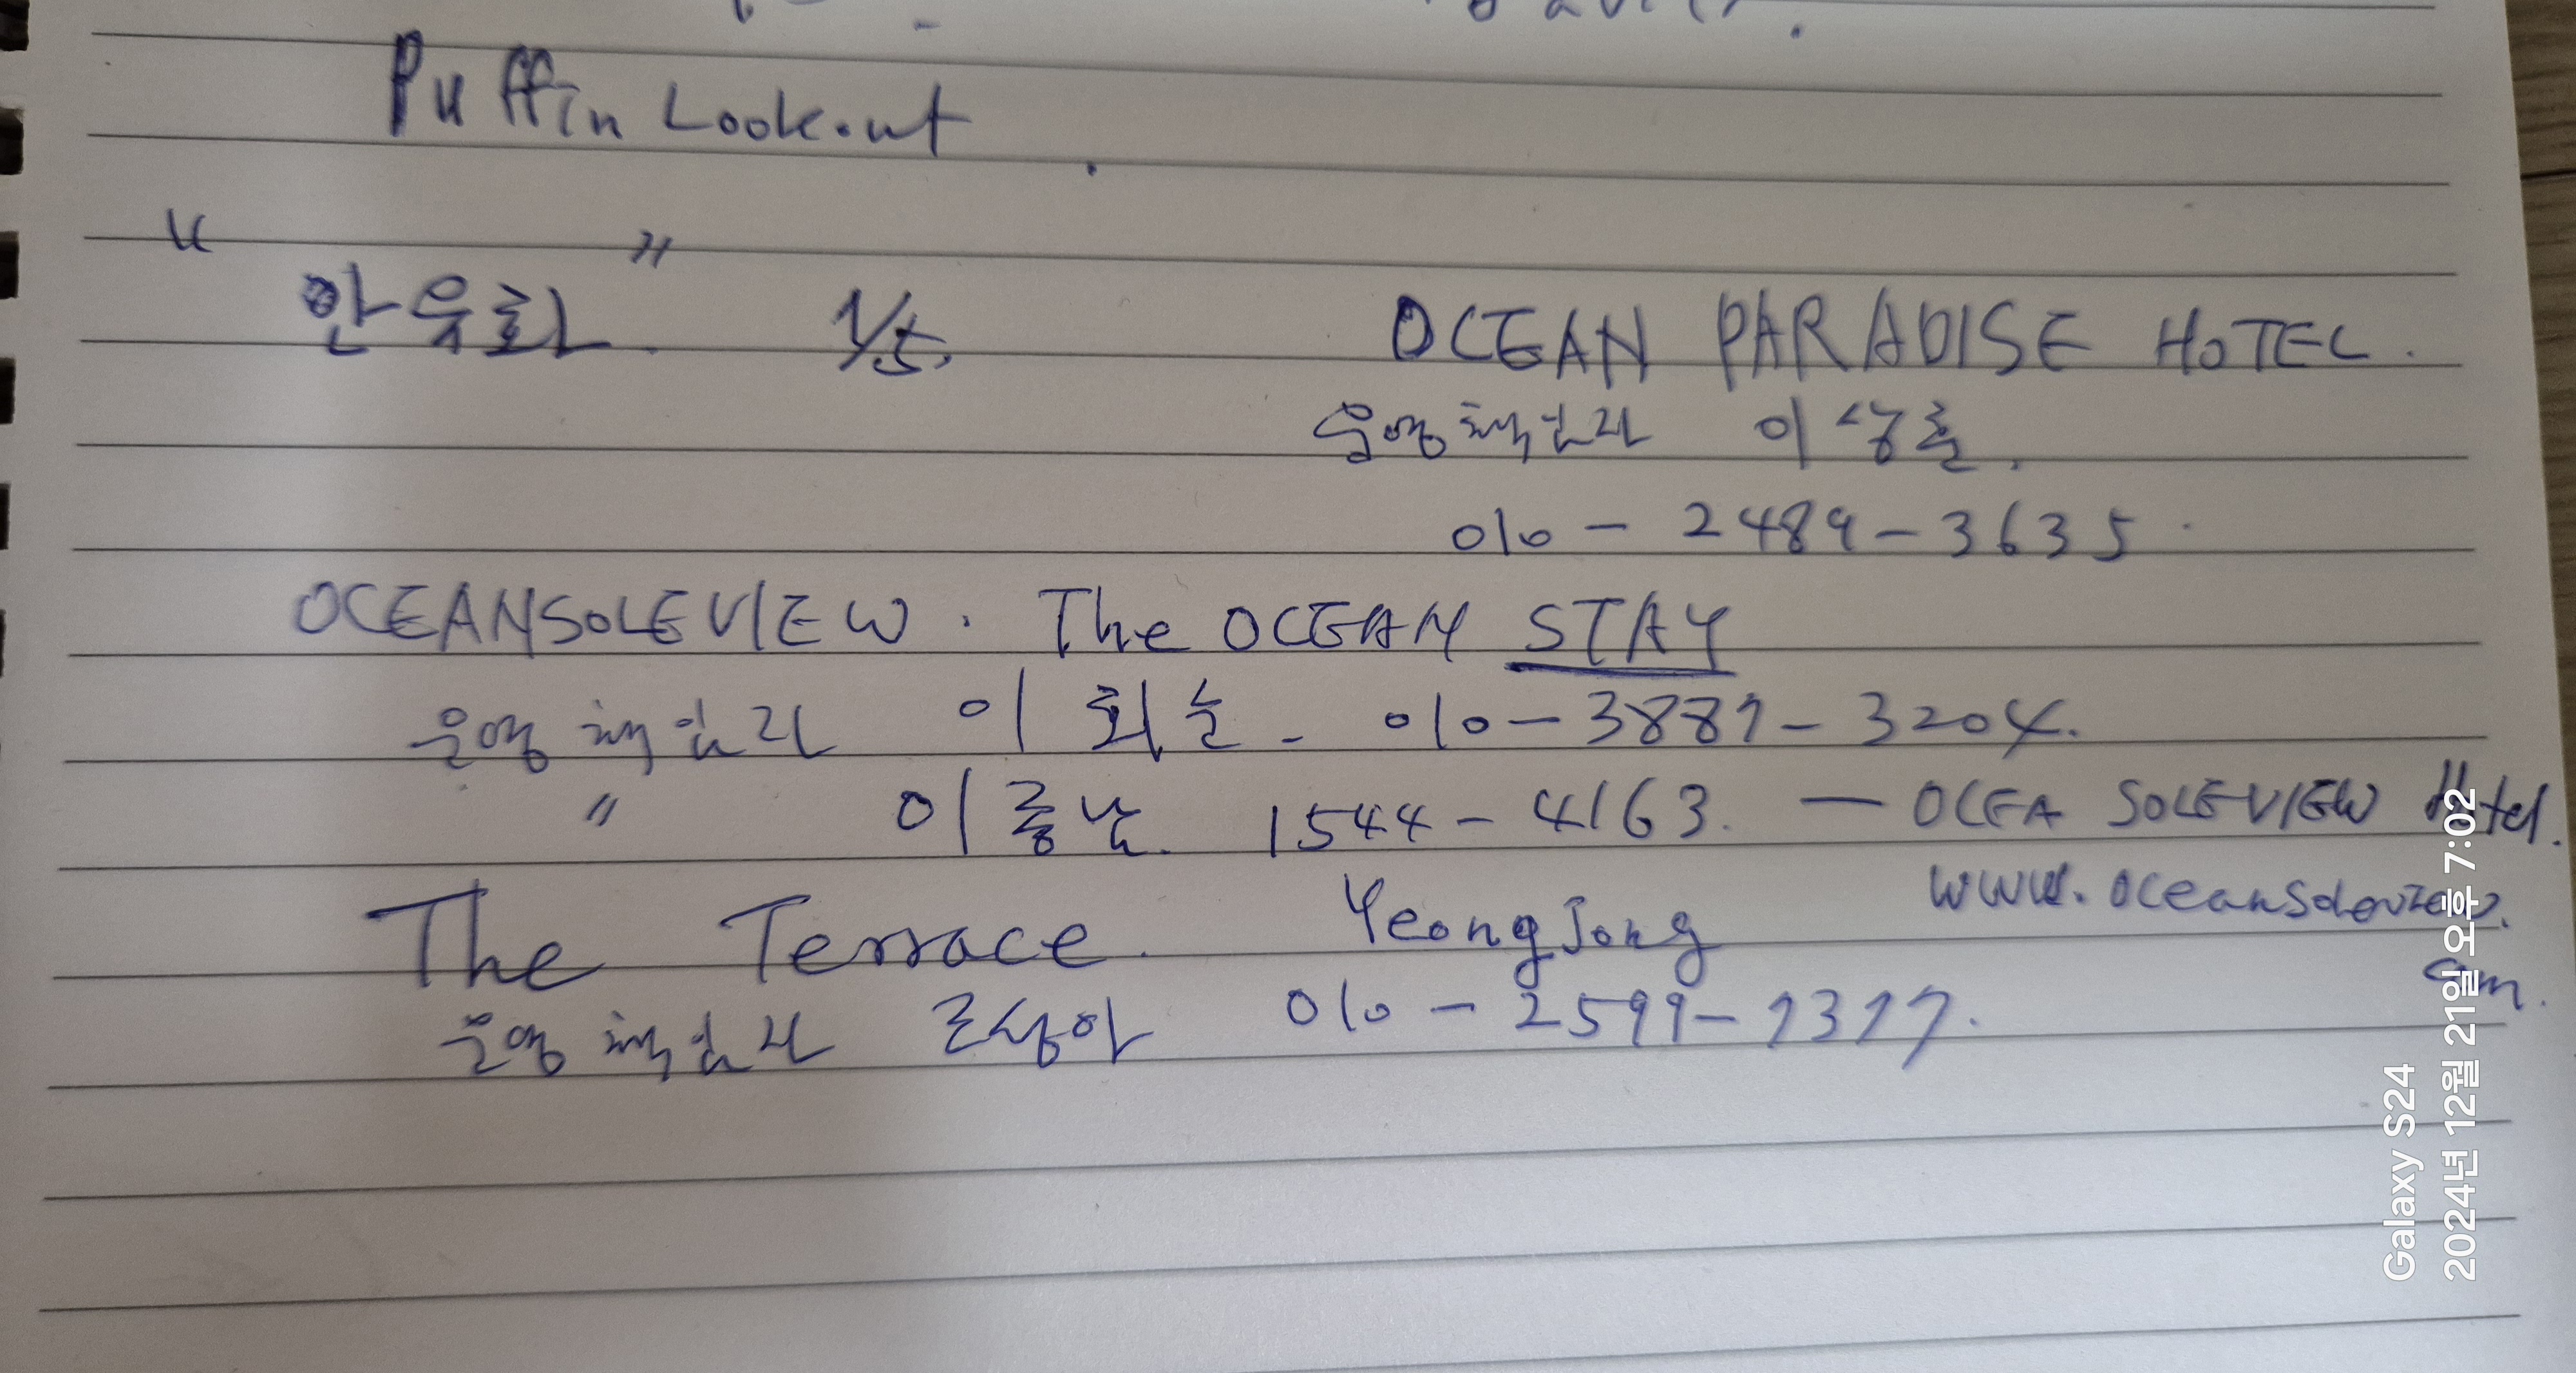 Puffin Lookout.
" 안유화 " 1/5.
OCEAN PARADISE HOTEL.
운영책임자 이상훈.
010 - 2489 - 3635.
OCEANSOLEVIEW. The OCEAN STAY
운영책임자 이희순. 010 - 3887 - 3204.
" 이종남. 1544 - 4163. — OCEA SOLEVIEW Hotel.
www.oceansoleview.com.
The Terrace. Yeongjong
운영책임자 010 - 2599 - 7377.
Galaxy S24
2024년 12월 21일 오후 7:02